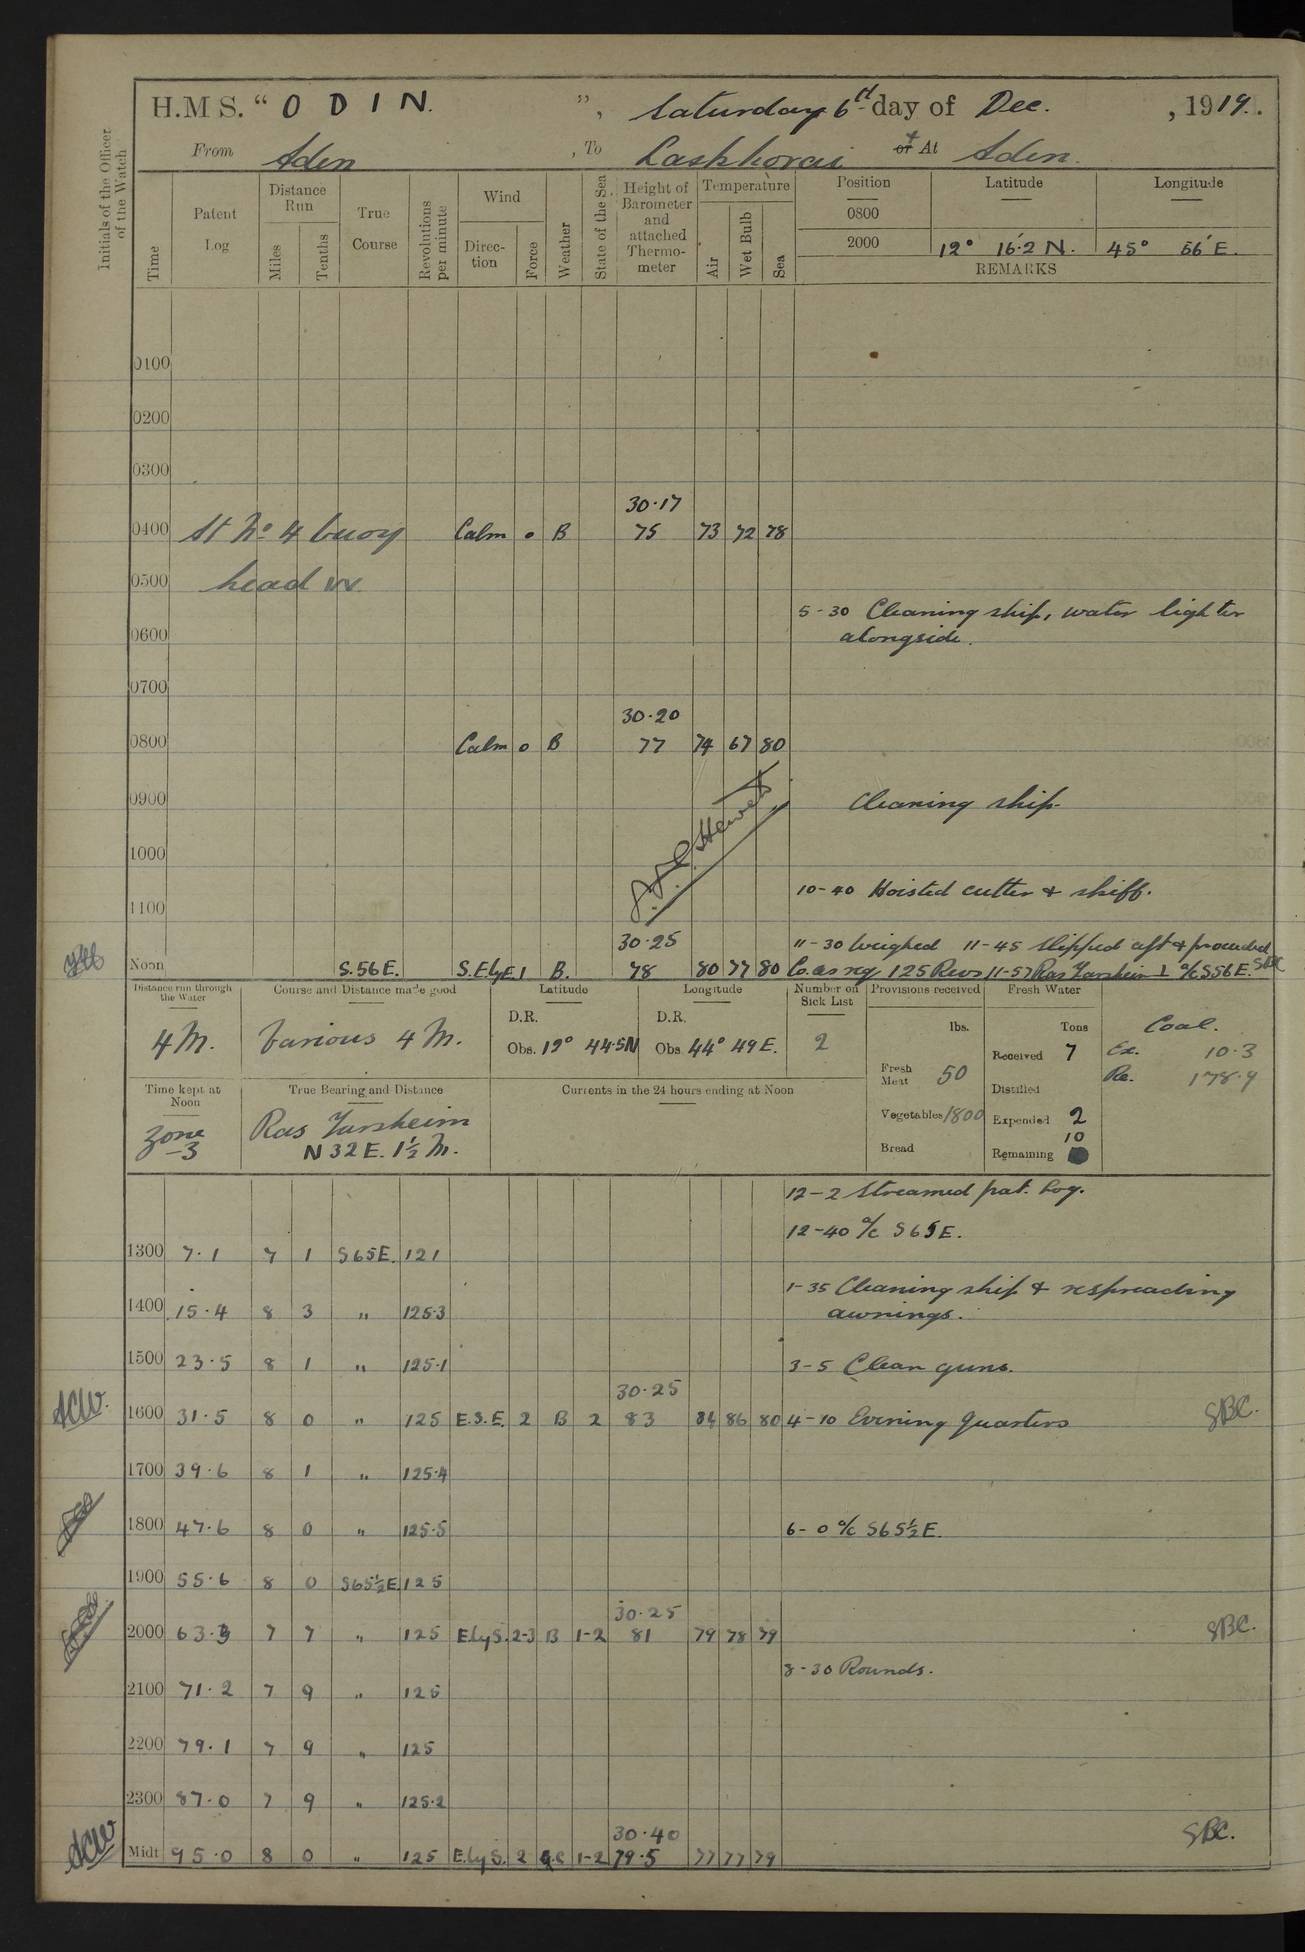 H.M S. “ O D I N. ”, Saturday 6th day of Dec. , 1919.
From Aden , To Laskhorai or + At Aden.
Initials of the Officer of the Watch
Time
Patent Log
Distance Run
Miles
Tenths
True Course
Revolutions per minute
Wind
Direc-tion
Force
Weather
State of the Sea
Height of Barometer and attached Thermo-meter
Temperature
Air
Wet Bulb
Sea
Position Latitude Longitude
0800
2000 12° 16·2 N. 45° 56' E.
REMARKS
0100
0200
0300
30·17
0400 At No 4 buoy Calm 0 B 75 73 72 78
0500 head W
5-30 Cleaning ship, water lighter
0600 alongside.
0700
30·20
0800 Calm 0 B 77 74 67 80
0900 Cleaning ship.
1000
10-40 Hoisted cutter & skiff.
1100
30·25 11-30 Weighed 11-45 Slipped aft & proceeded
Noon S.56E. S.ElyE 1 B. 78 80 77 80 Co. as req 125 Revs 11-57 Ras Tarshein ⊥ a/c S56E. SBC
Distance run through the Water
4 M.
Course and Distance made good
Various 4 M.
Latitude
D.R.
Obs. 12° 44·5N
Longitude
D.R.
Obs. 44° 49 E.
Number on Sick List
2
Provisions received
lbs.
Fresh Meat 50
Vegetables 1800
Bread
Fresh Water
Tons
Received 7
Distilled
Expended 2
10
Remaining
Coal.
Ex. 10·3
Re. 178·9
Time kept at Noon
Zone
-3
True Bearing and Distance
Ras Tarsheim
N 32 E. 1½ M.
Currents in the 24 hours ending at Noon
12-2 Streamed pat. log.
12-40 a/c S65E.
1300 7·1 7 1 S65E. 121
1-35 Cleaning ship & respreading
1400 15·4 8 3 " 125·3 awnings.
1500 23·5 8 1 " 125·1 3-5 Clean guns.
30·25
ACW. 1600 31·5 8 0 " 125 E.S.E. 2 B 2 83 84 86 80 4-10 Evening Quarters SBC.
1700 39·6 8 1 " 125·4
1800 47·6 8 0 " 125·5 6-0 a/c S65½E.
1900 55·6 8 0 S65½E. 125
30·25
2000 63·3 7 7 " 125 ElyS. 2-3 B 1-2 81 79 78 79 SBC.
8-30 Rounds.
2100 71·2 7 9 " 125
2200 79·1 7 9 " 125
2300 87·0 7 9 " 125·2
30·40
ACW Midt 95·0 8 0 " 125 ElyS. 2 1-2 79·5 77 77 79 SBC.